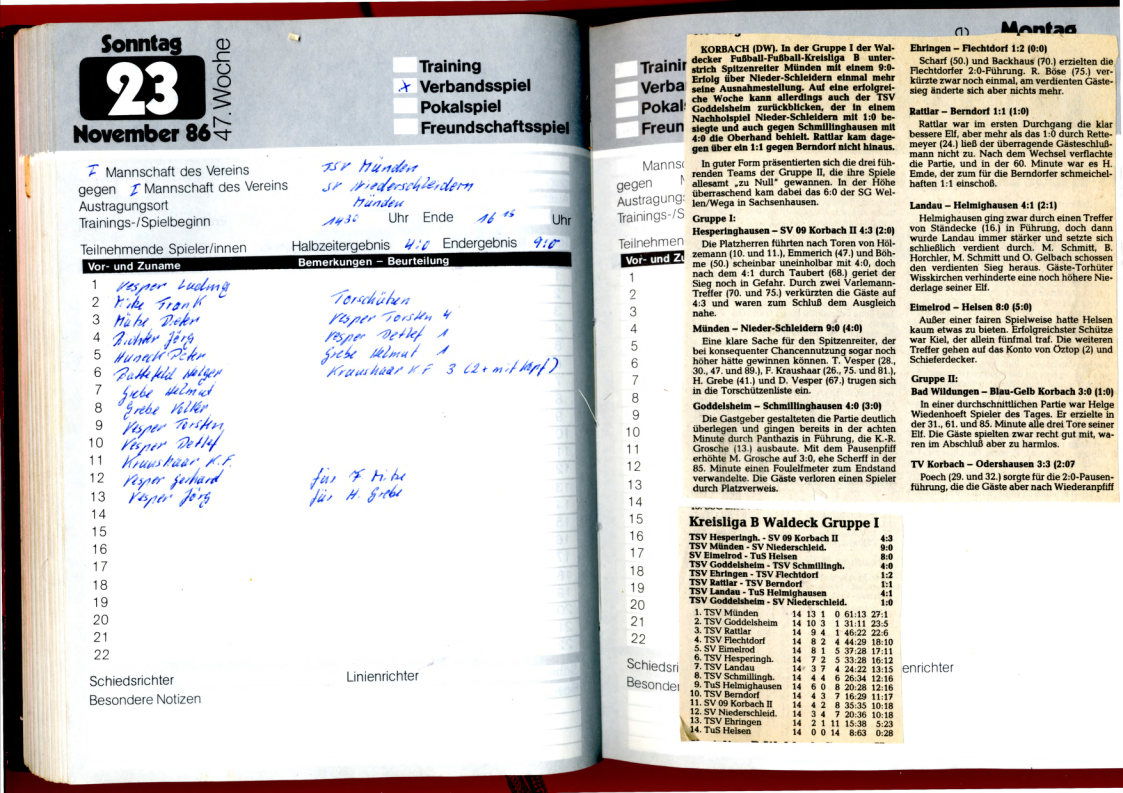 Sonntag
23
November 86
47. Woche
Training
x Verbandsspiel
Pokalspiel
Freundschaftsspiel
I Mannschaft des Vereins TSV Münden
gegen I Mannschaft des Vereins SV Niederschleidern
Austragungsort Münden
Trainings-/Spielbeginn 14 30 Uhr Ende 16 15 Uhr
Teilnehmende Spieler/innen Halbzeitergebnis 4:0 Endergebnis 9:0
Vor- und Zuname Bemerkungen – Beurteilung
1 Vesper Ludwig
2 Mike Frank Torschützen
3 Dieter Vesper Torsten 4
4 Richter Jörg Vesper Detlef 1
5 Peter Grebe Helmut 1
6 Battefeld Holger Kraushaar K.F. 3 (2 x mit Kopf)
7 Grebe Helmut
8 Grebe Volker
9 Vesper Torsten
10 Vesper Detlef
11 Kraushaar K.F.
12 Vesper Gerhard für F. Mike
13 Vesper Jörg für H. Grebe
14
15
16
17
18
19
20
21
22
Schiedsrichter Linienrichter
Besondere Notizen
Montag
Trainin
Verba
Pokal
Freun
Manns
gegen
Austragungs
Trainings-/S
Teilnehmen
Vor- und Zu
1
2
3
4
5
6
7
8
9
10
11
12
13
14
15
16
17
18
19
20
21
22
Schiedsri enrichter
Besonde
KORBACH (DW). In der Gruppe I der Wal-
decker Fußball-Fußball-Kreisliga B unter-
strich Spitzenreiter Münden mit einem 9:0-
Erfolg über Nieder-Schleidern einmal mehr
seine Ausnahmestellung. Auf eine erfolgrei-
che Woche kann allerdings auch der TSV
Goddelsheim zurückblicken, der in einem
Nachholspiel Nieder-Schleidern mit 1:0 be-
siegte und auch gegen Schmillinghausen mit
4:0 die Oberhand behielt. Rattlar kam dage-
gen über ein 1:1 gegen Berndorf nicht hinaus.
In guter Form präsentierten sich die drei füh-
renden Teams der Gruppe II, die ihre Spiele
allesamt „zu Null" gewannen. In der Höhe
überraschend kam dabei das 6:0 der SG Wel-
len/Wega in Sachsenhausen.
Gruppe I:
Hesperinghausen – SV 09 Korbach II 4:3 (2:0)
Die Platzherren führten nach Toren von Höl-
zemann (10. und 11.), Emmerich (47.) und Böh-
me (50.) scheinbar uneinholbar mit 4:0, doch
nach dem 4:1 durch Taubert (68.) geriet der
Sieg noch in Gefahr. Durch zwei Varlemann-
Treffer (70. und 75.) verkürzten die Gäste auf
4:3 und waren zum Schluß dem Ausgleich
nahe.
Münden – Nieder-Schleidern 9:0 (4:0)
Eine klare Sache für den Spitzenreiter, der
bei konsequenter Chancennutzung sogar noch
höher hätte gewinnen können. T. Vesper (28.,
30., 47. und 89.), F. Kraushaar (26., 75. und 81.),
H. Grebe (41.) und D. Vesper (67.) trugen sich
in die Torschützenliste ein.
Goddelsheim – Schmillinghausen 4:0 (3:0)
Die Gastgeber gestalteten die Partie deutlich
überlegen und gingen bereits in der achten
Minute durch Panthazis in Führung, die K.-R.
Grosche (13.) ausbaute. Mit dem Pausenpfiff
erhöhte M. Grosche auf 3:0, ehe Scherff in der
85. Minute einen Foulelfmeter zum Endstand
verwandelte. Die Gäste verloren einen Spieler
durch Platzverweis.
Ehringen – Flechtdorf 1:2 (0:0)
Scharf (50.) und Backhaus (70.) erzielten die
Flechtdorfer 2:0-Führung. R. Böse (75.) ver-
kürzte zwar noch einmal, am verdienten Gäste-
sieg änderte sich aber nichts mehr.
Rattlar – Berndorf 1:1 (1:0)
Rattlar war im ersten Durchgang die klar
bessere Elf, aber mehr als das 1:0 durch Rette-
meyer (24.) ließ der überragende Gästeschluß-
mann nicht zu. Nach dem Wechsel verflachte
die Partie, und in der 60. Minute war es H.
Emde, der zum für die Berndorfer schmeichel-
haften 1:1 einschoß.
Landau – Helmighausen 4:1 (2:1)
Helmighausen ging zwar durch einen Treffer
von Ständecke (16.) in Führung, doch dann
wurde Landau immer stärker und setzte sich
schließlich verdient durch. M. Schmitt, B.
Horchler, M. Schmitt und O. Gelbach schossen
den verdienten Sieg heraus. Gäste-Torhüter
Wisskirchen verhinderte eine noch höhere Nie-
derlage seiner Elf.
Eimelrod – Helsen 8:0 (5:0)
Außer einer fairen Spielweise hatte Helsen
kaum etwas zu bieten. Erfolgreichster Schütze
war Kiel, der allein fünfmal traf. Die weiteren
Treffer gehen auf das Konto von Öztop (2) und
Schieferdecker.
Gruppe II:
Bad Wildungen – Blau-Gelb Korbach 3:0 (1:0)
In einer durchschnittlichen Partie war Helge
Wiedenhoeft Spieler des Tages. Er erzielte in
der 31., 61. und 85. Minute alle drei Tore seiner
Elf. Die Gäste spielten zwar recht gut mit, wa-
ren im Abschluß aber zu harmlos.
TV Korbach – Odershausen 3:3 (2:07
Poech (29. und 32.) sorgte für die 2:0-Pausen-
führung, die die Gäste aber nach Wiederanpfiff
Kreisliga B Waldeck Gruppe I
TSV Hesperingh. - SV 09 Korbach II 4:3
TSV Münden - SV Niederschleid. 9:0
SV Eimelrod - TuS Helsen 8:0
TSV Goddelsheim - TSV Schmillingh. 4:0
TSV Ehringen - TSV Flechtdorf 1:2
TSV Rattlar - TSV Berndorf 1:1
TSV Landau - TuS Helmighausen 4:1
TSV Goddelsheim - SV Niederschleid. 1:0
1. TSV Münden 14 13 1 0 61:13 27:1
2. TSV Goddelsheim 14 10 3 1 31:11 23:5
3. TSV Rattlar 14 9 4 1 46:22 22:6
4. TSV Flechtdorf 14 8 2 4 44:29 18:10
5. SV Eimelrod 14 8 1 5 37:28 17:11
6. TSV Hesperingh. 14 7 2 5 33:28 16:12
7. TSV Landau 14 3 7 4 24:22 13:15
8. TSV Schmillingh. 14 4 4 6 26:34 12:16
9. TuS Helmighausen 14 6 0 8 20:28 12:16
10. TSV Berndorf 14 4 3 7 16:29 11:17
11. SV 09 Korbach II 14 4 2 8 35:35 10:18
12. SV Niederschleid. 14 3 4 7 20:36 10:18
13. TSV Ehringen 14 2 1 11 15:38 5:23
14. TuS Helsen 14 0 0 14 8:63 0:28